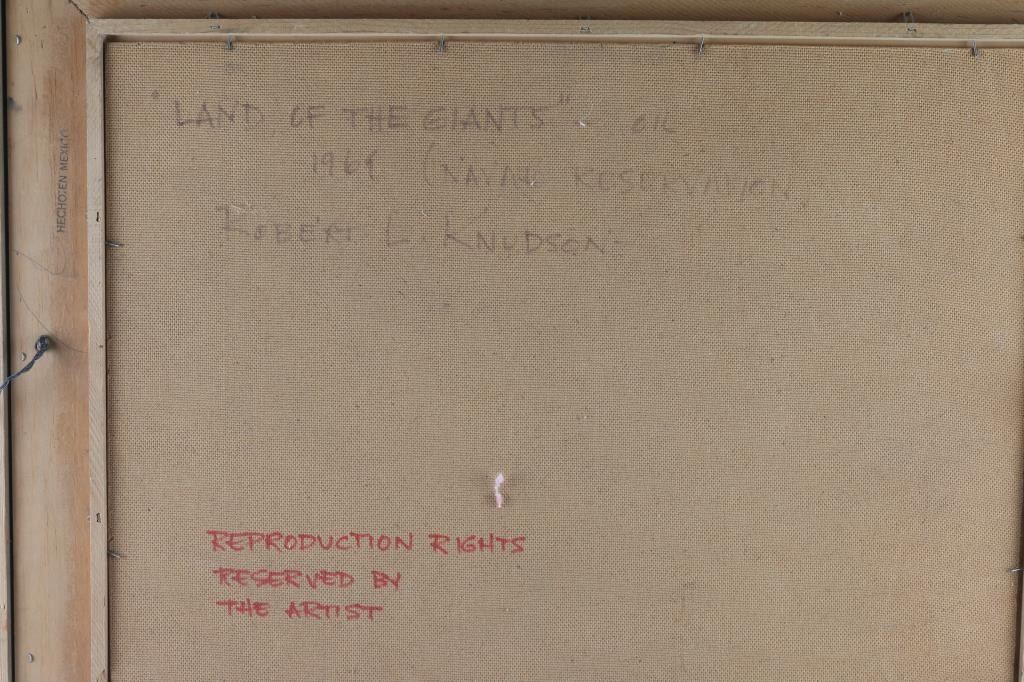 "LAND OF THE GIANTS" - OIL
(NAVAHO RESERVATION
ROBERT L. KNUDSON-
HECHO EN MEXICO
REPRODUCTION RIGHTS
RESERVED BY
THE ARTIST